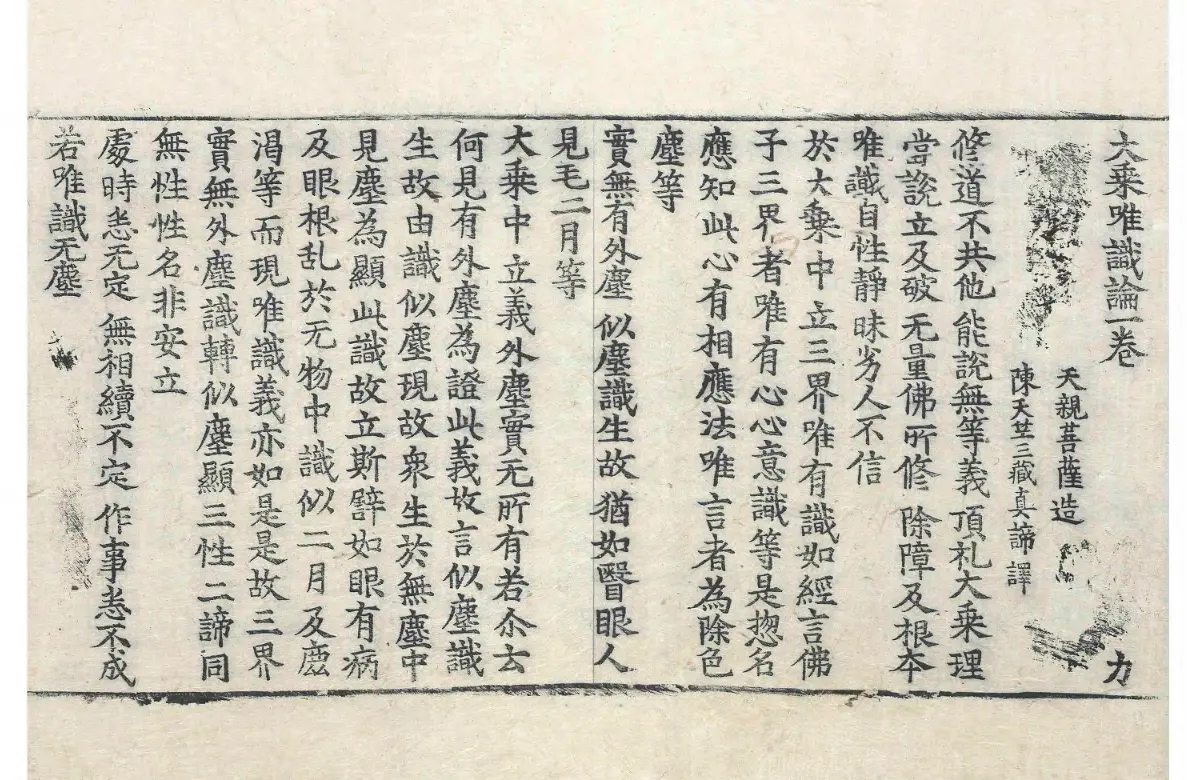 大乘唯識論一卷 力
天親菩薩造
陳天竺三藏真諦譯
修道不共他 能說無等義 頂礼大乘理
當說立及破 无量佛所修 除障及根本
唯識自性靜 昧劣人不信
於大乘中立三界唯有識如經言佛
子三界者唯有心心意識等是惣名
應知此心有相應法唯言者為除色
塵等
實無有外塵 似塵識生故 猶如瞖眼人
見毛二月等
大乘中立義外塵實无所有若尒云
何見有外塵為證此義故言似塵識
生故由識似塵現故衆生於無塵中
見塵為顯此識故立斯譬如眼有病
及眼根乱於无物中識似二月及鹿
渴等而現唯識義亦如是是故三界
實無外塵識轉似塵顯三性二諦同
無性性名非安立
處時悉无定 無相續不定 作事悉不成
若唯識无塵